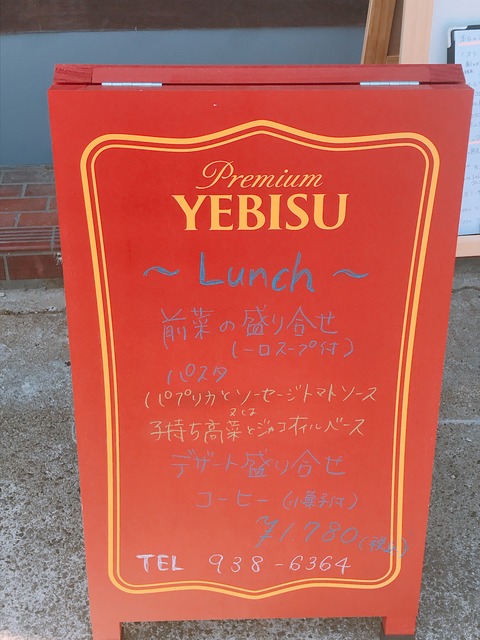 Premium
YEBISU
~ Lunch ~
前菜の盛り合せ
(一口スープ付)
パスタ
パプリカとソーセージトマトソース
又は
子持ち高菜とジャコオイルベース
デザート盛り合せ
コーヒー (小菓子付)
¥1.780(税込)
TEL 938-6364